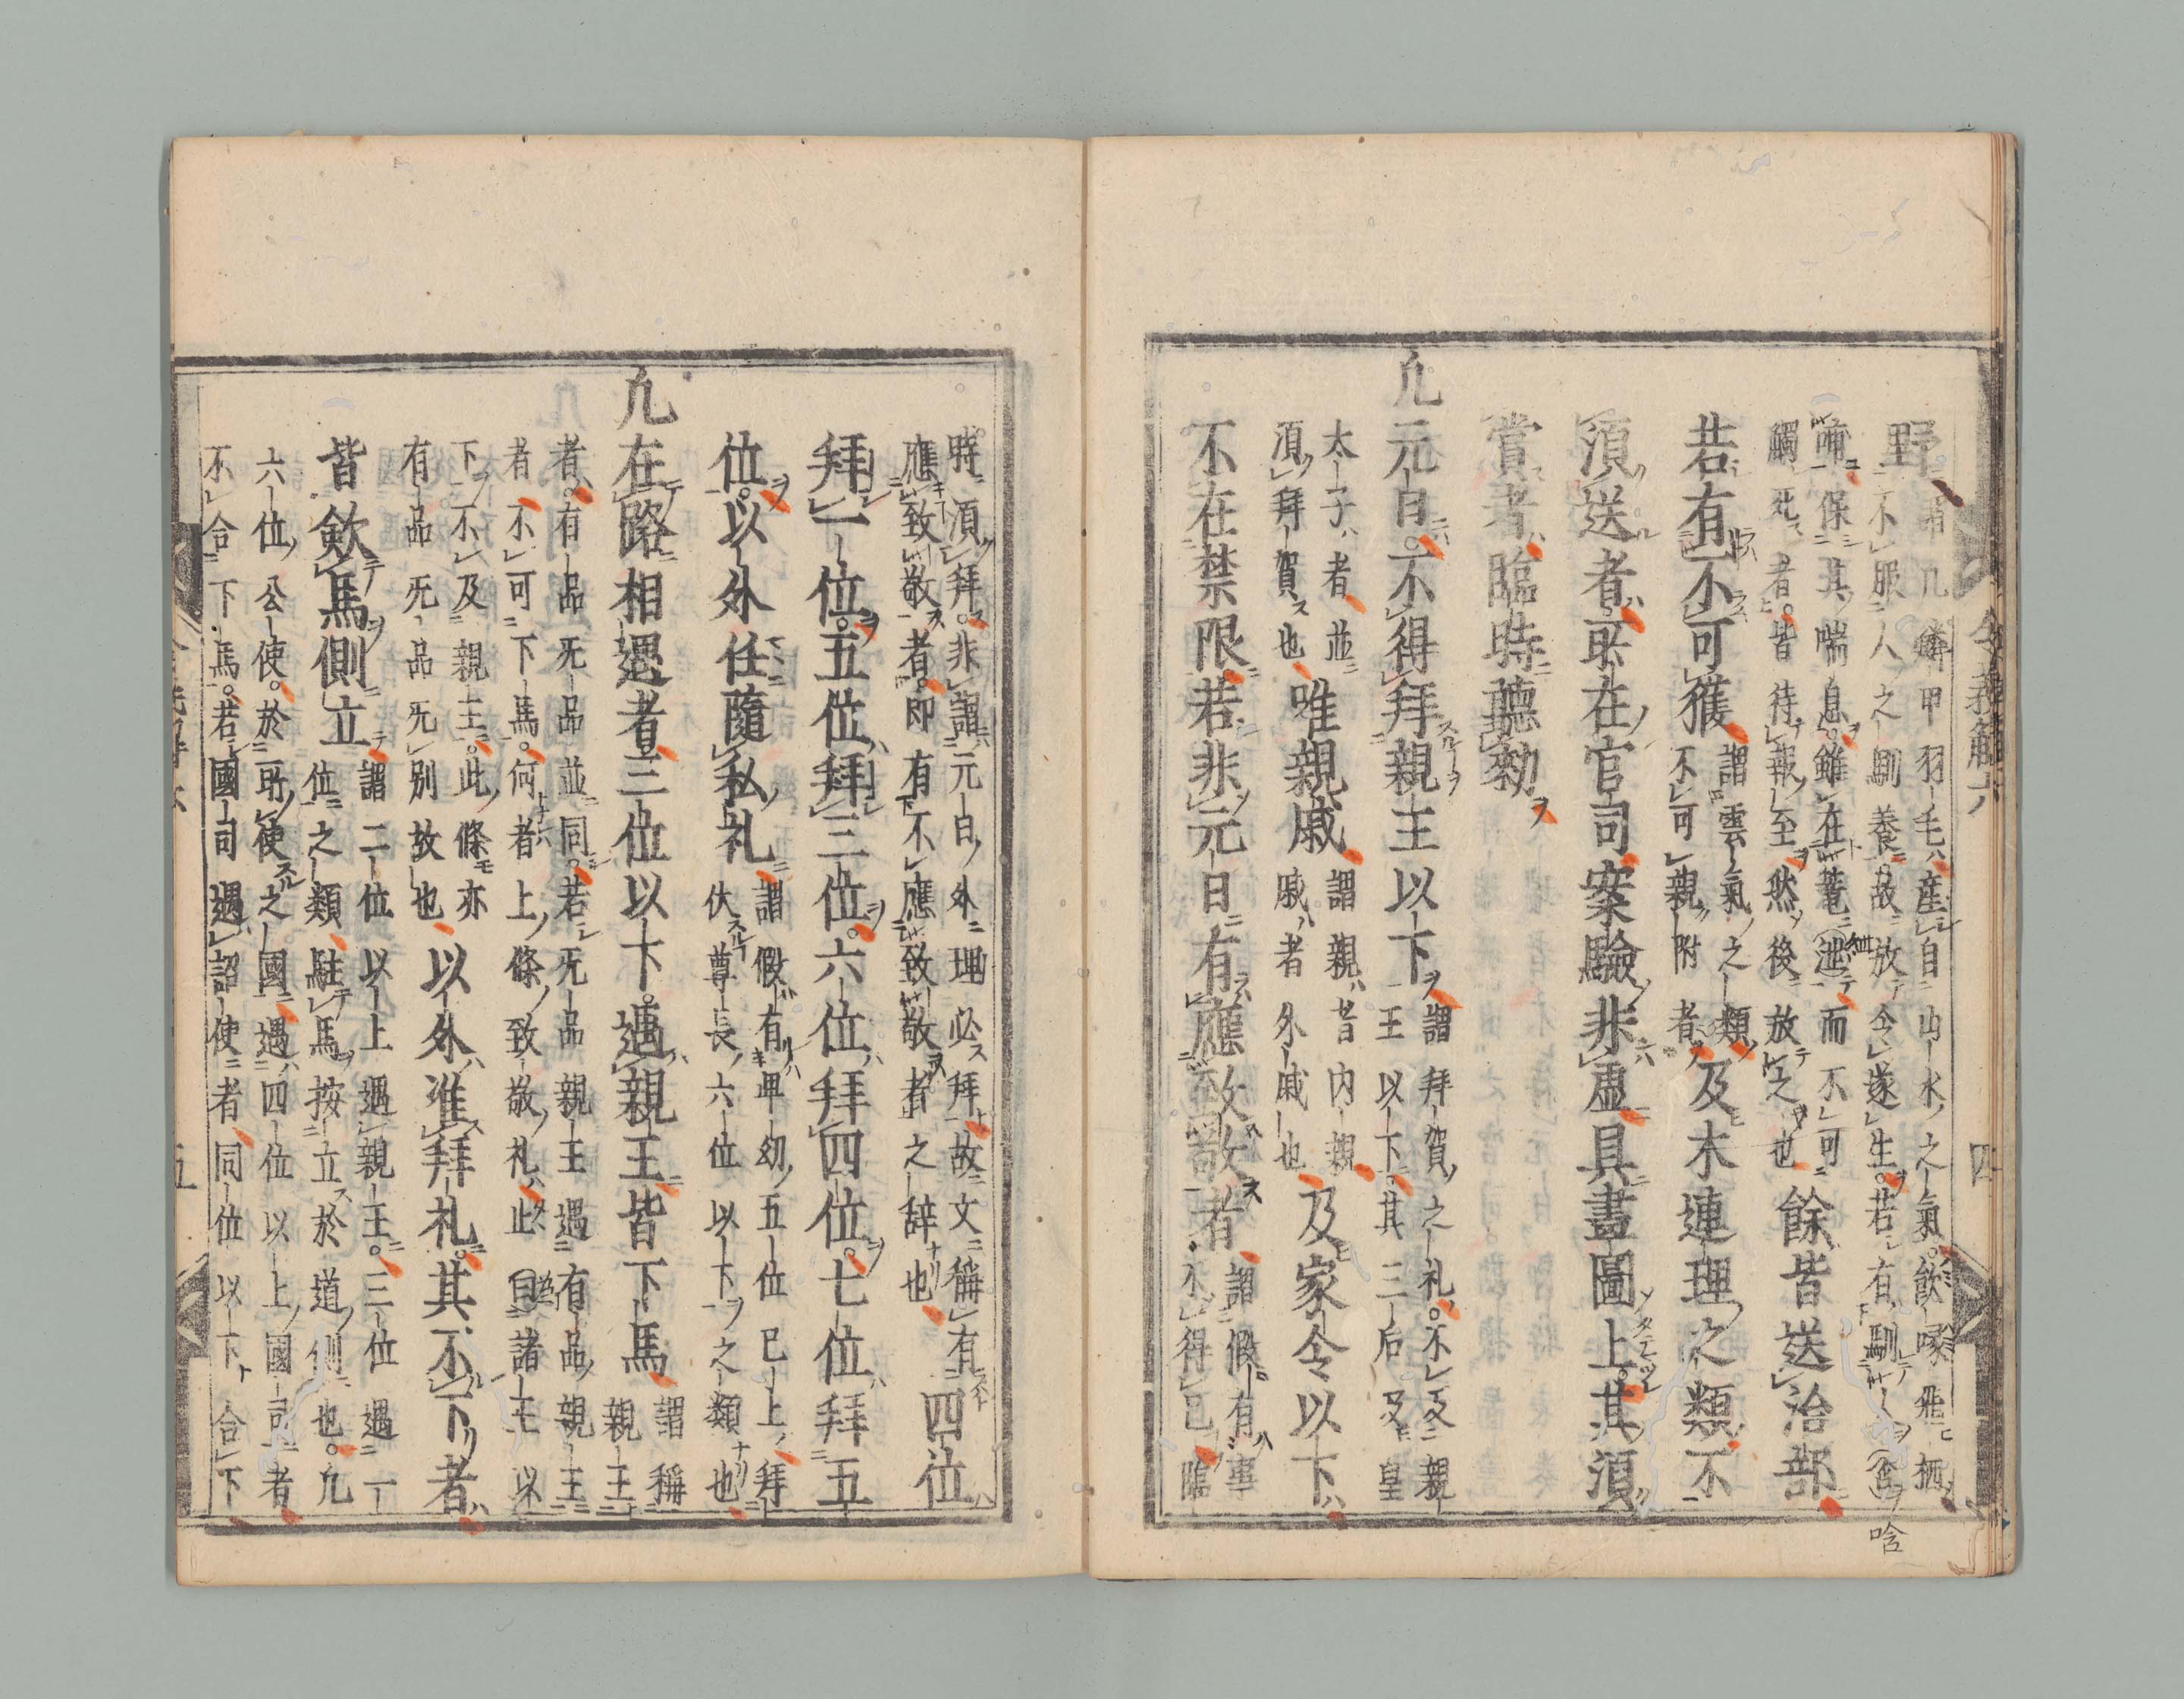 野
謂凡鱗甲羽毛産自山水之氣飲啄飛栖
不服人之馴養故放令遂生若有馴
保其喘息雖在而不可
觸死者皆待報至然後放之也
餘皆送治部
若有不可獲
謂雲氣之類
不可親附者
及木連理之類不
須送者所在官司案驗非虚具畫圖上其須
賞者臨時聽勅
凡元日不得拜親王以下
謂拜賀之礼不及親
王以下其三后及皇
太子者並
須拜賀也
唯親戚
謂親者内親
戚者外戚也
及家令以下
不在禁限若非元日有應致敬者
謂假有事
不得已臨
時須拜非謂元日外理必拜故文稱有
應致敬者即有不應致敬者之辞也
四位
拜一位五位拜三位六位拜四位七位拜五
位以外任隨私礼
謂假有卑幼五位已上拜
伏尊長六位以下之類也
凡在路相遇者三位以下遇親王皆下馬
謂稱
親王
者有品无品並同若无品親王遇有品親王
者不可下馬何者上條致敬礼止自諸王以
下不及親王此條亦
有品无品无別故也
以外准拜礼其不下者
皆斂馬側立
謂二位以上遇親王三位遇一
位之類駐馬按立於道側也凡
六位公使於所使之國遇四位以上國司者
不合下馬若國司遇詔使者同位以下合下
令義解六
四
五
唅